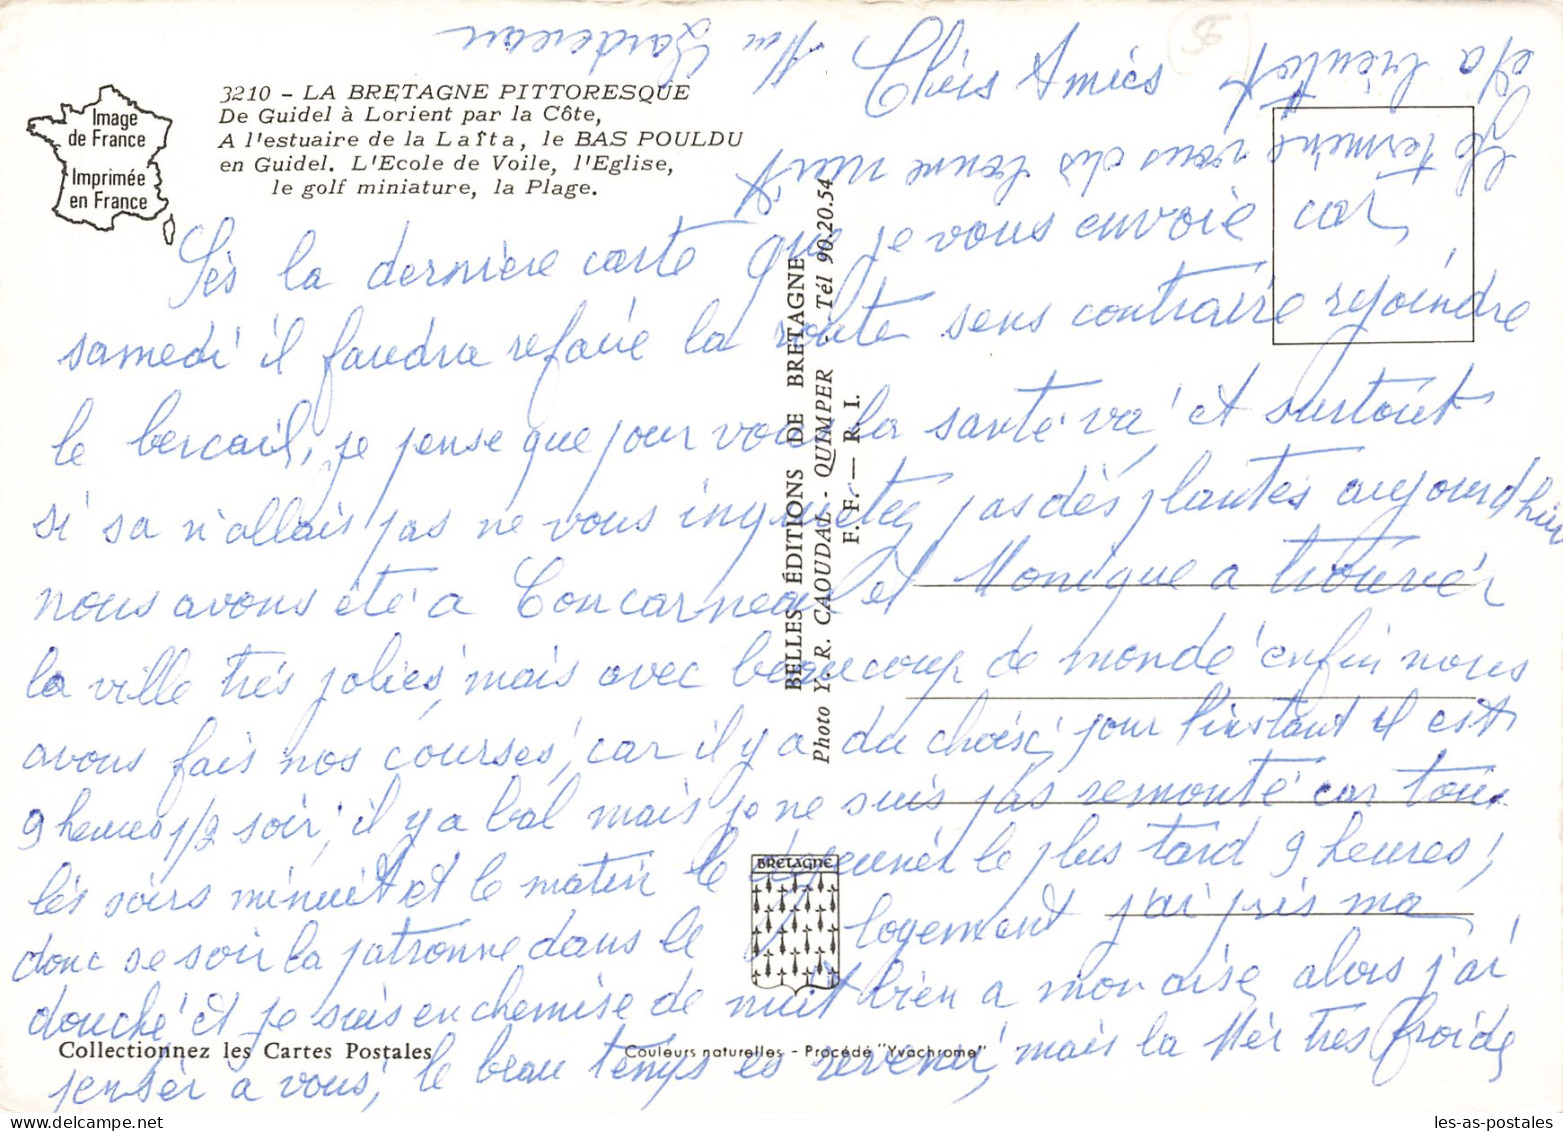 Image
de France
Imprimée
en France
3210 - LA BRETAGNE PITTORESQUE
De Guidel à Lorient par la Côte,
A l'estuaire de la Laïta, le BAS POULDU
en Guidel. L'Ecole de Voile, l'Eglise,
le golf miniature, la Plage.
56
Chers Amies
Sés la dernière carte que je vous envoie car
samedi il faudra refaire la route sens contraire rejoindre
le bercail, je pense que pour vous la santé va et surtout
si sa n'allais pas ne vous inquietez pas dés plantes aujourd'hui
nous avons été a Concarneau et Monique a trouver
la ville trés jolies, mais avec beaucoup de monde enfin nous
avons fais nos courses, car il y a du choix, pour l'instant il est
9 heures 1/2 soir, il y a bal mais je ne suis pas remonté car tous
lés soirs minuit et le matin le déjeuner le plus tard 9 heures,
donc se soir la patronne dans le logement j'ai pris ma
douche et je suis en chemise de nuit bien a mon aise alors j'ai
penser a vous, le beau temps es revenu, mais la Mer trés froide
Je termine vous dis bonne nuit
et a bientot
Mme
BELLES ÉDITIONS DE BRETAGNE
Photo Y. R. CAOUDAL - QUIMPER - Tél 90.20.54
F. F. — R. I.
BRETAGNE
Collectionnez les Cartes Postales
Couleurs naturelles - Procédé "Yvachrome"
les-as-postales